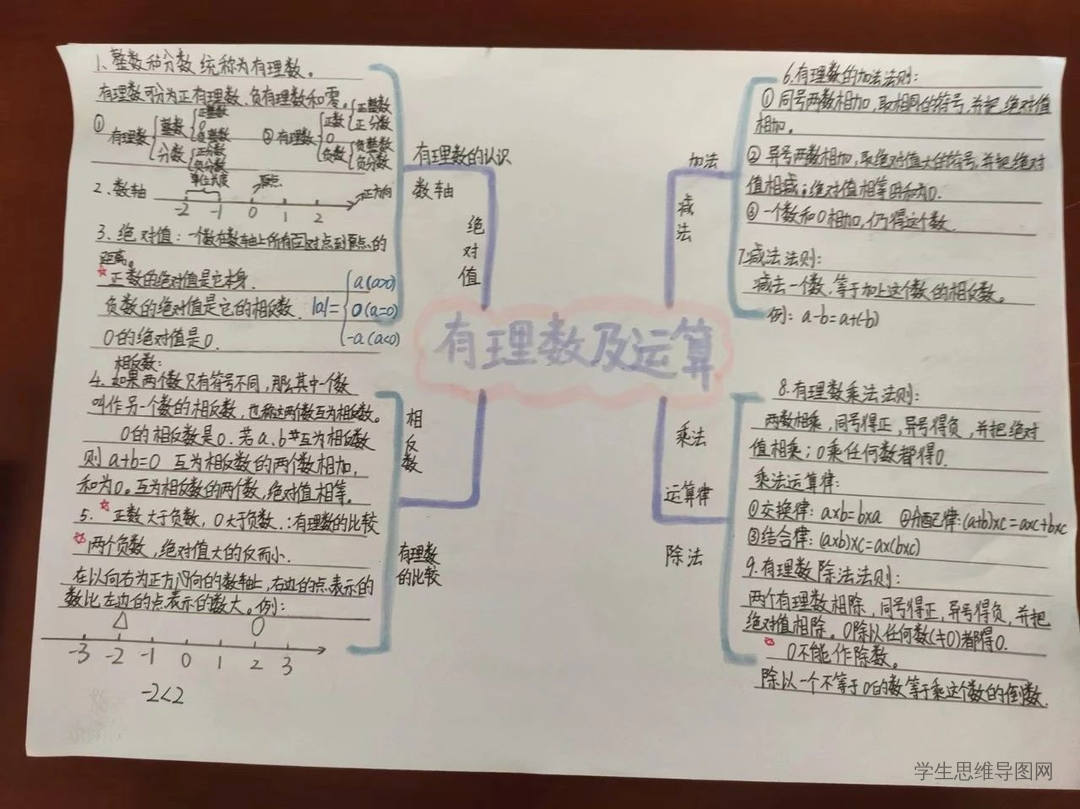 1、整数和分数统称为有理数。
有理数可分为正有理数、负有理数和零。
① 有理数 整数 正整数 0 负整数 分数 正分数 负分数
② 有理数 正数 正整数 正分数 0 负数 负整数 负分数
2、数轴 单位长度 原点 正方向
-2 -1 0 1 2
3、绝对值：一个数在数轴上所有对点到原点的
距离。
正数的绝对值是它本身.
负数的绝对值是它的相反数.
0的绝对值是0.
|a|= a(a>0)
0(a=0)
-a(a<0)
相反数:
4、如果两个数只有符号不同,那么其中一个数
叫作另一个数的相反数,也称这两个数互为相反数。
0的相反数是0.若a、b互为相反数
则a+b=0 互为相反数的两个数相加,
和为0。互为相反数的两个数,绝对值相等。
5、正数大于负数,0大于负数.:有理数的比较
两个负数,绝对值大的反而小.
在以向右为正方向的数轴上,右边的点表示的
数比左边的点表示的数大。例:
-3 -2 -1 0 1 2 3
-2<2
有理数的认识
数轴
绝对值
相反数
有理数
的比较
有理数及运算
加法
减法
乘法
运算律
除法
6.有理数的加法法则:
① 同号两数相加,取相同的符号,并把绝对值
相加。
② 异号两数相加,取绝对值大的符号,并把绝对
值相减;绝对值相等时和为0.
③ 一个数和0相加,仍得这个数.
7.减法法则:
减去一个数,等于加上这个数的相反数。
例: a-b=a+(-b)
8.有理数乘法法则:
两数相乘,同号得正,异号得负,并把绝对
值相乘;0乘任何数都得0.
乘法运算律:
①交换律: a×b=b×a ②分配律:(a+b)×c=a×c+b×c
③结合律: (a×b)×c=a×(b×c)
9.有理数除法法则:
两个有理数相除,同号得正,异号得负,并把
绝对值相除。0除以任何数(≠0)都得0.
0不能作除数。
除以一个不等于0的数等于乘这个数的倒数.
学生思维导图网